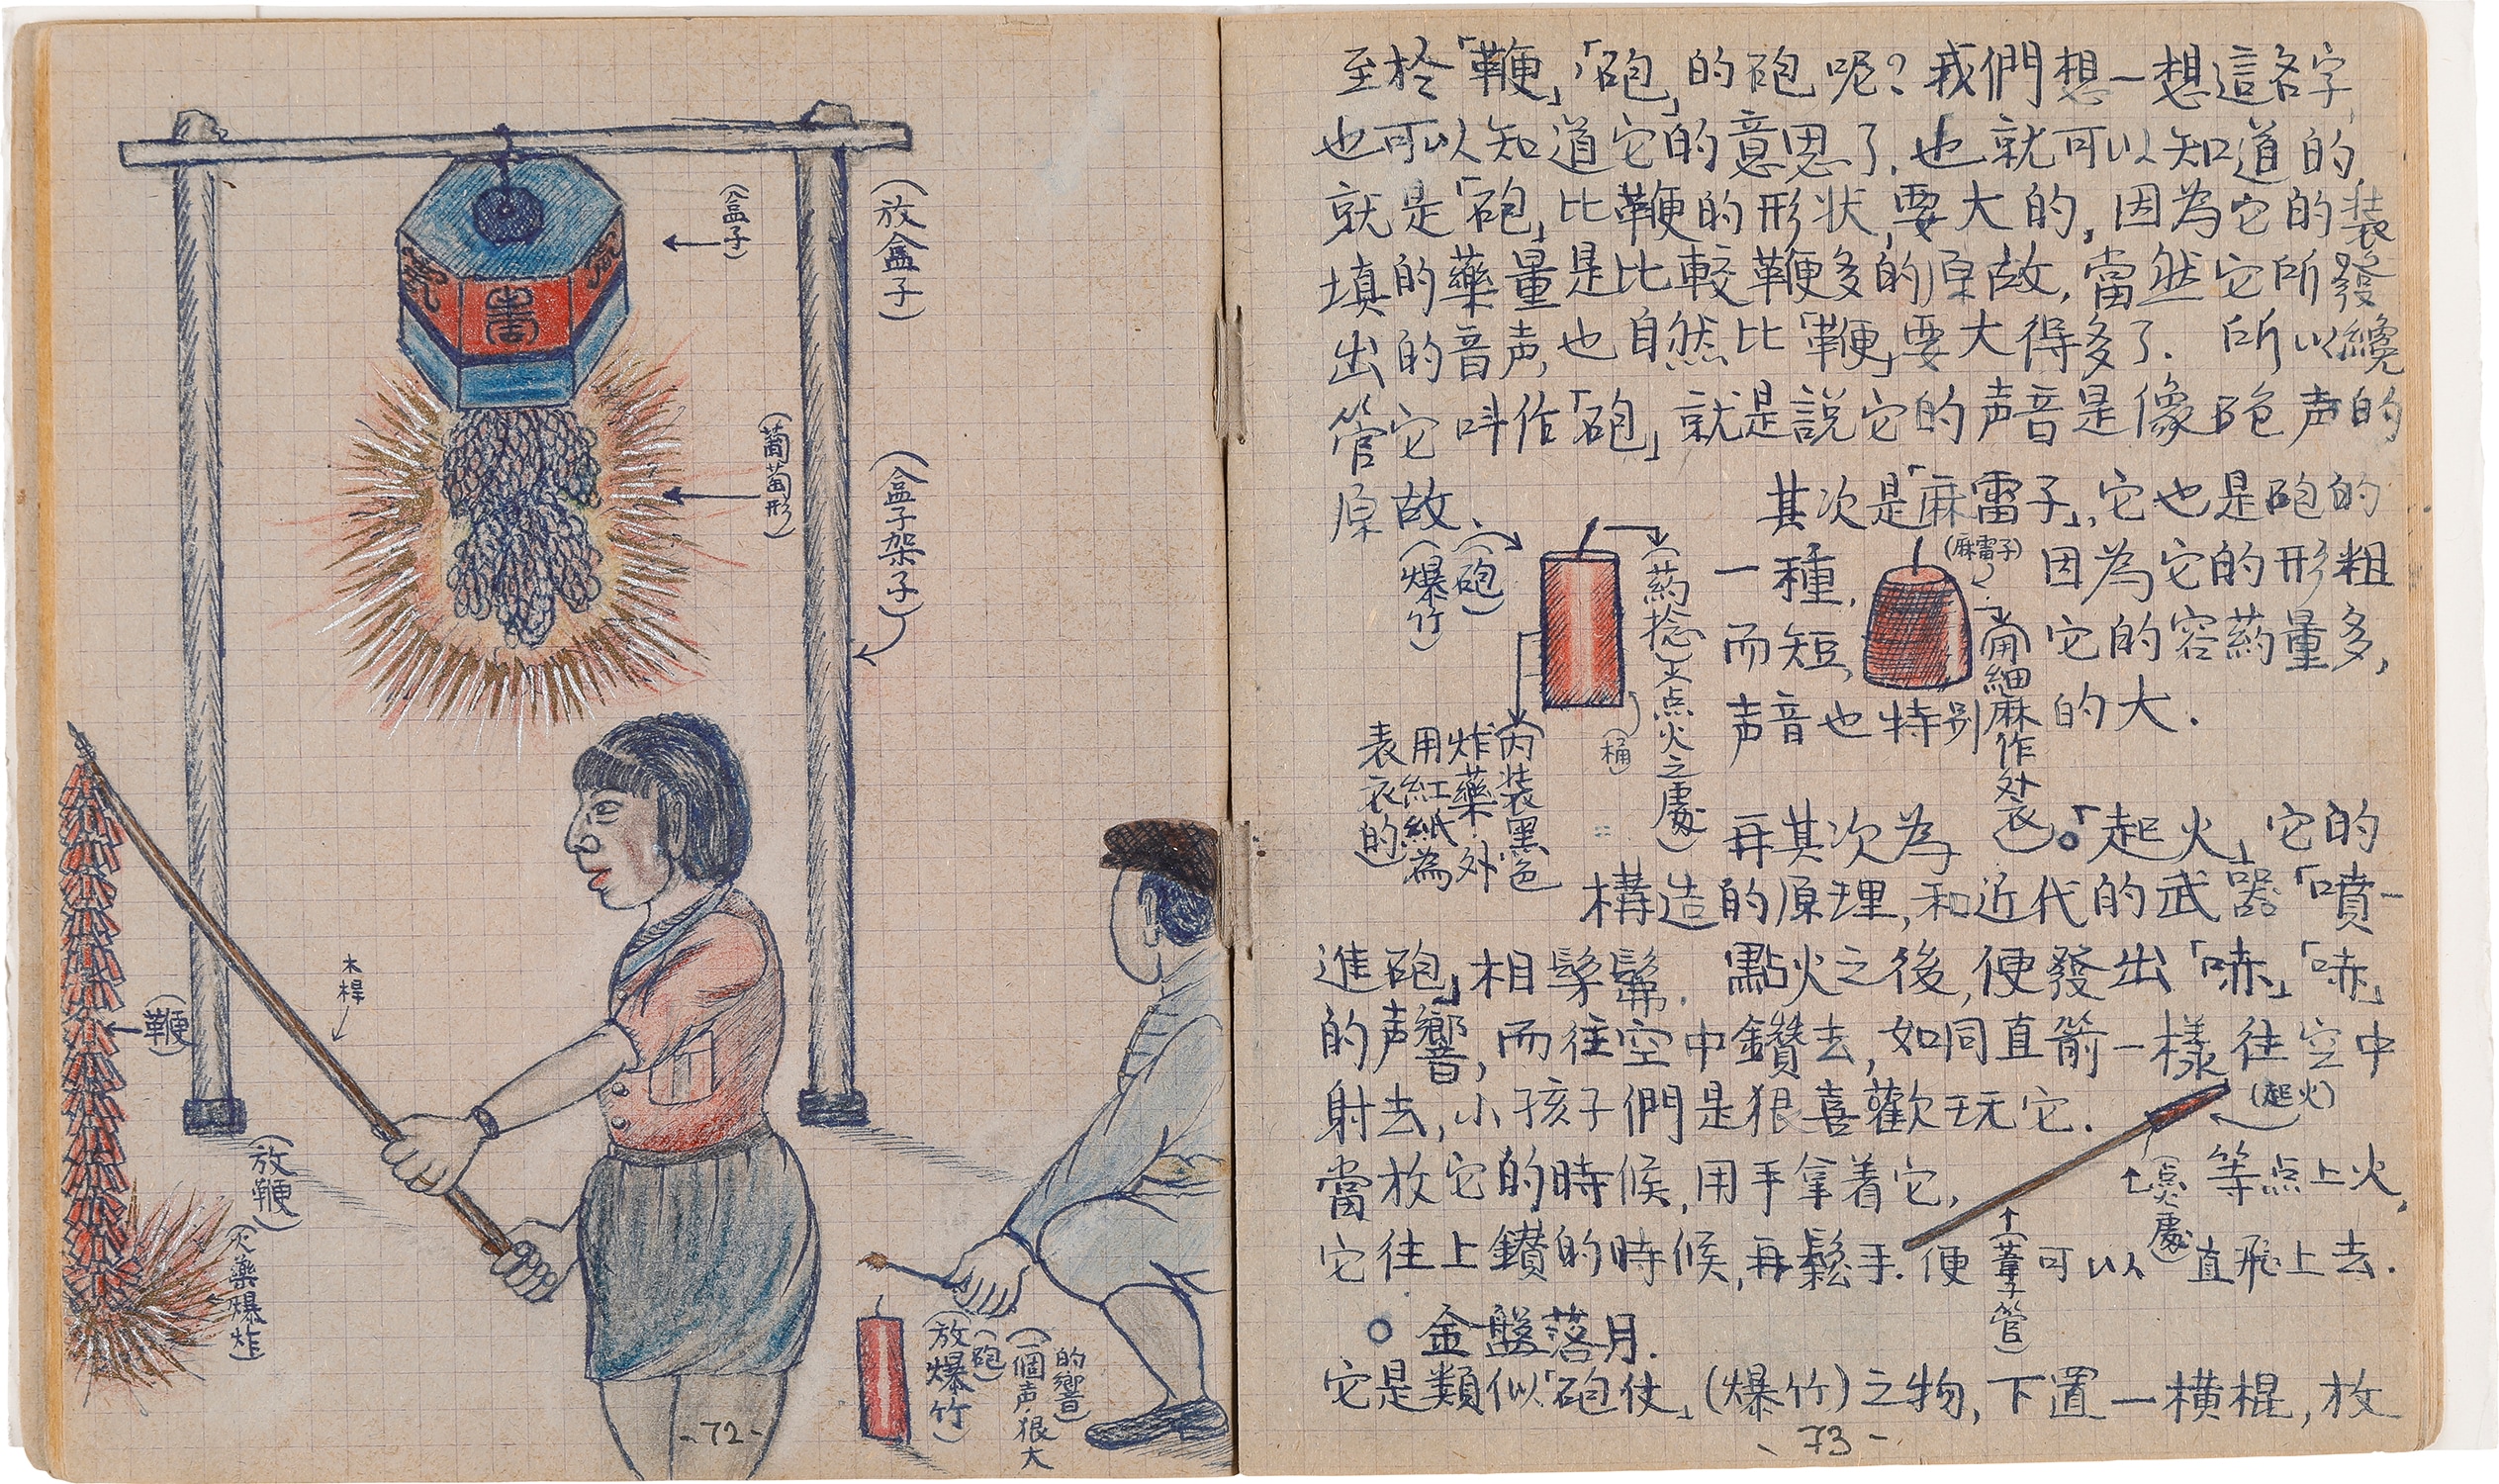 (放盒子)
(盒子)
壽
(葡萄形)
(盒子架子)
木桿
(鞭)
(放鞭)
(火藥爆炸)
(放爆竹)
(砲)
(一個声狠大
的響)
-72-
至於「鞭」,「砲」的砲呢?我們想一想這名字,
也可以知道它的意思了.也就可以知道的,
就是「砲」比鞭的形狀,要大的,因為它的裝
填的藥量是比較鞭多的原故,當然它所發
出的音声,也自然比「鞭」要大得多了.所以纔
管它叫作「砲」就是說它的声音是像砲声的
原故、
(砲)
(爆竹)
(葯捻)
点火之處)
(桶)
(內裝黑色
炸藥,外
用紅紙為
表衣的)
其次是「麻雷子」,它也是砲的
一種,因為它的形粗
而短,它的容葯量多,
声音也特別的大.
(麻雷子)
(甭細麻作外衣)
再其次為。「起火」它的
構造的原理,和近代的武器「噴-
進砲」相髣髴.點火之後,便發出「哧」「哧」
的声響,而往空中鑽去,如同直箭一樣往空中
射去,小孩子們是狠喜歡玩它.
(起火)
當放它的時候,用手拿着它,等点上火,
(点火處)
它往上鑽的時候,再鬆手.便可以直飛上去.
(葦子管)
○金盤落月.
它是類似「砲仗」(爆竹)之物,下置一橫棍,放
-73-